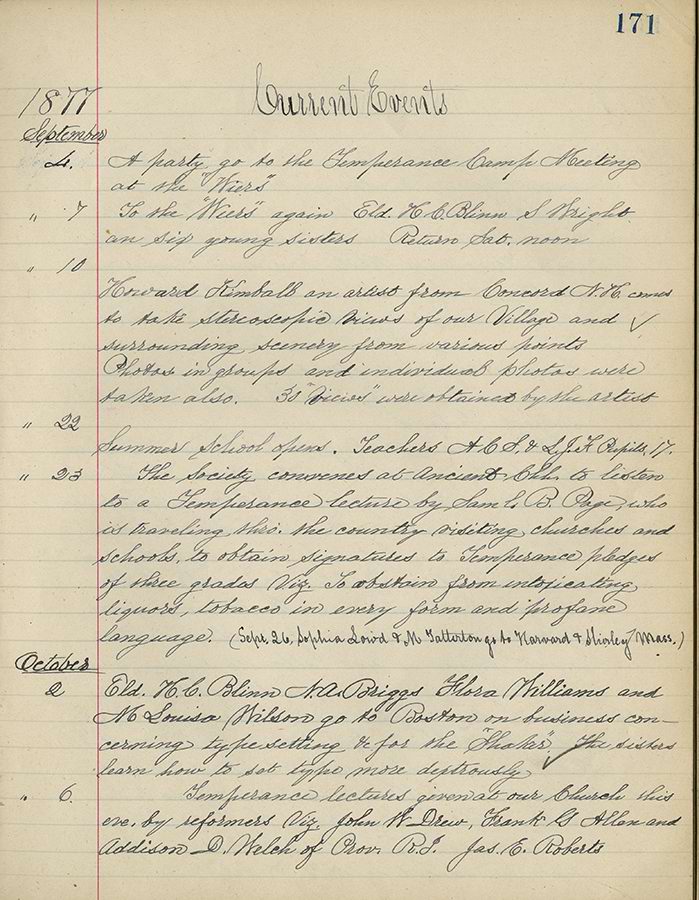 171
Current Events
1877
September
4. A party go to the Temperance Camp Meeting
at the "Wiers"
" 7 To the "Wiers" again Eld. H. C. Blinn S Wright
an six young sisters Return Sat. noon
" 10
Howard Kimball an artist from Concord N.H. comes
to take stereoscopic views of our Village and ✓
surrounding scenery from various points
Photos in groups and individual photos were
taken also. 35 "views" were obtained by the artist
" 22
Summer School opens. Teachers A C S. & L. J. K Pupils, 17.
" 23 The Society convenes at Ancient Chh. to listen
to a Temperance lecture by Saml. B. Page, who
is traveling thro. the country visiting churches and
schools, to obtain signatures to Temperance pledges
of three grades Viz. To abstain from intoxicating
liquors, tobacco in every form and profane
language. (Sept. 26, Sophia & M go to Harvard & Shirley Mass.)
October
2 Eld. H. C. Blinn N. A. Briggs Flora Williams and
M Louisa Wilson go to Boston on business con-
cerning type setting &c for the "Shaker" ✓ The sisters
learn how to set type more dextrously
" 6. Temperance lectures given at our Church this
eve. by reformers Viz. John W Drew, Frank G Allen and
Addison D. Welch of Prov. R.I. Jas. E. Roberts